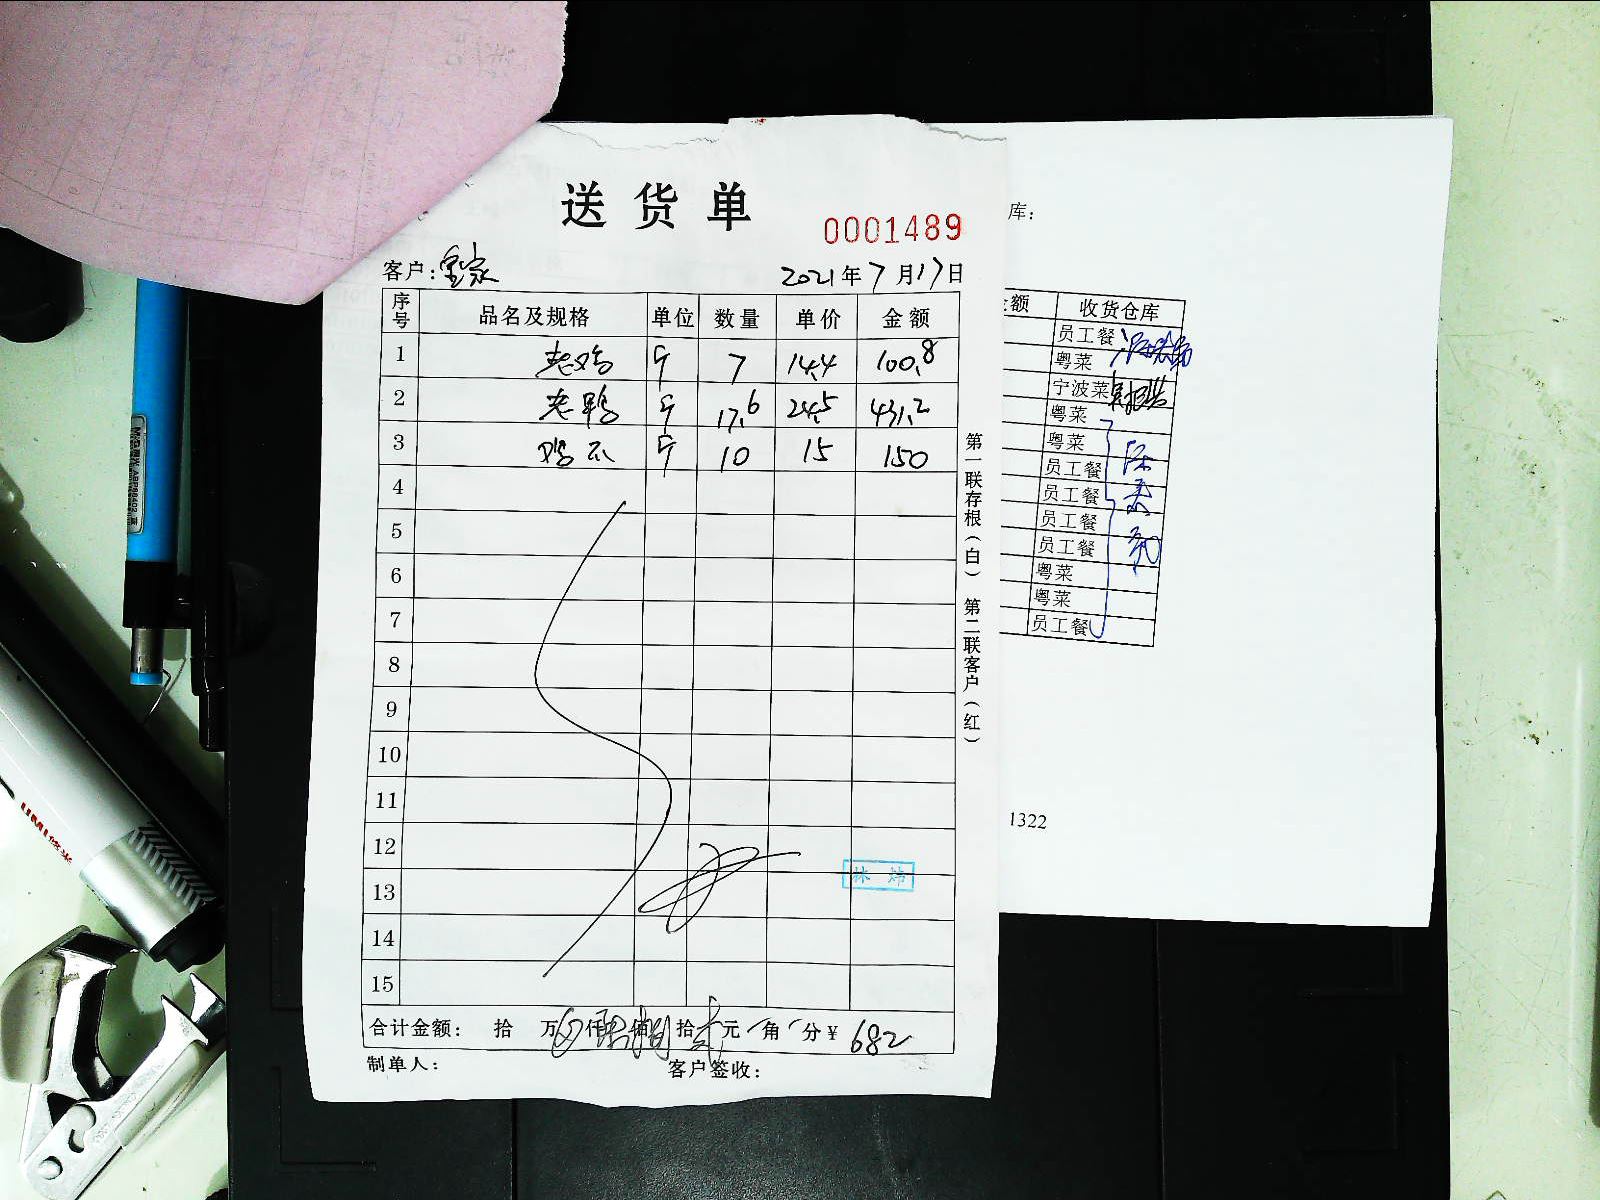 送货单
0001489
客户：
2021年7月17日
序号 品名及规格 单位 数量 单价 金额
1 老鸡 斤 7 14.4 100.8
2 老鸭 斤 17.6 24.5 431.2
3 鸡爪 斤 10 15 150
4
5
6
7
8
9
10
11
12
13
14
15
合计金额： 拾 万 仟 佰 拾 元 角 分 ¥ 682
制单人： 客户签收：
第一联存根（白） 第二联客户（红）
林炜
库：
额 收货仓库
员工餐
粤菜
宁波菜
粤菜
粤菜
员工餐
员工餐
员工餐
员工餐
粤菜
粤菜
员工餐
1322